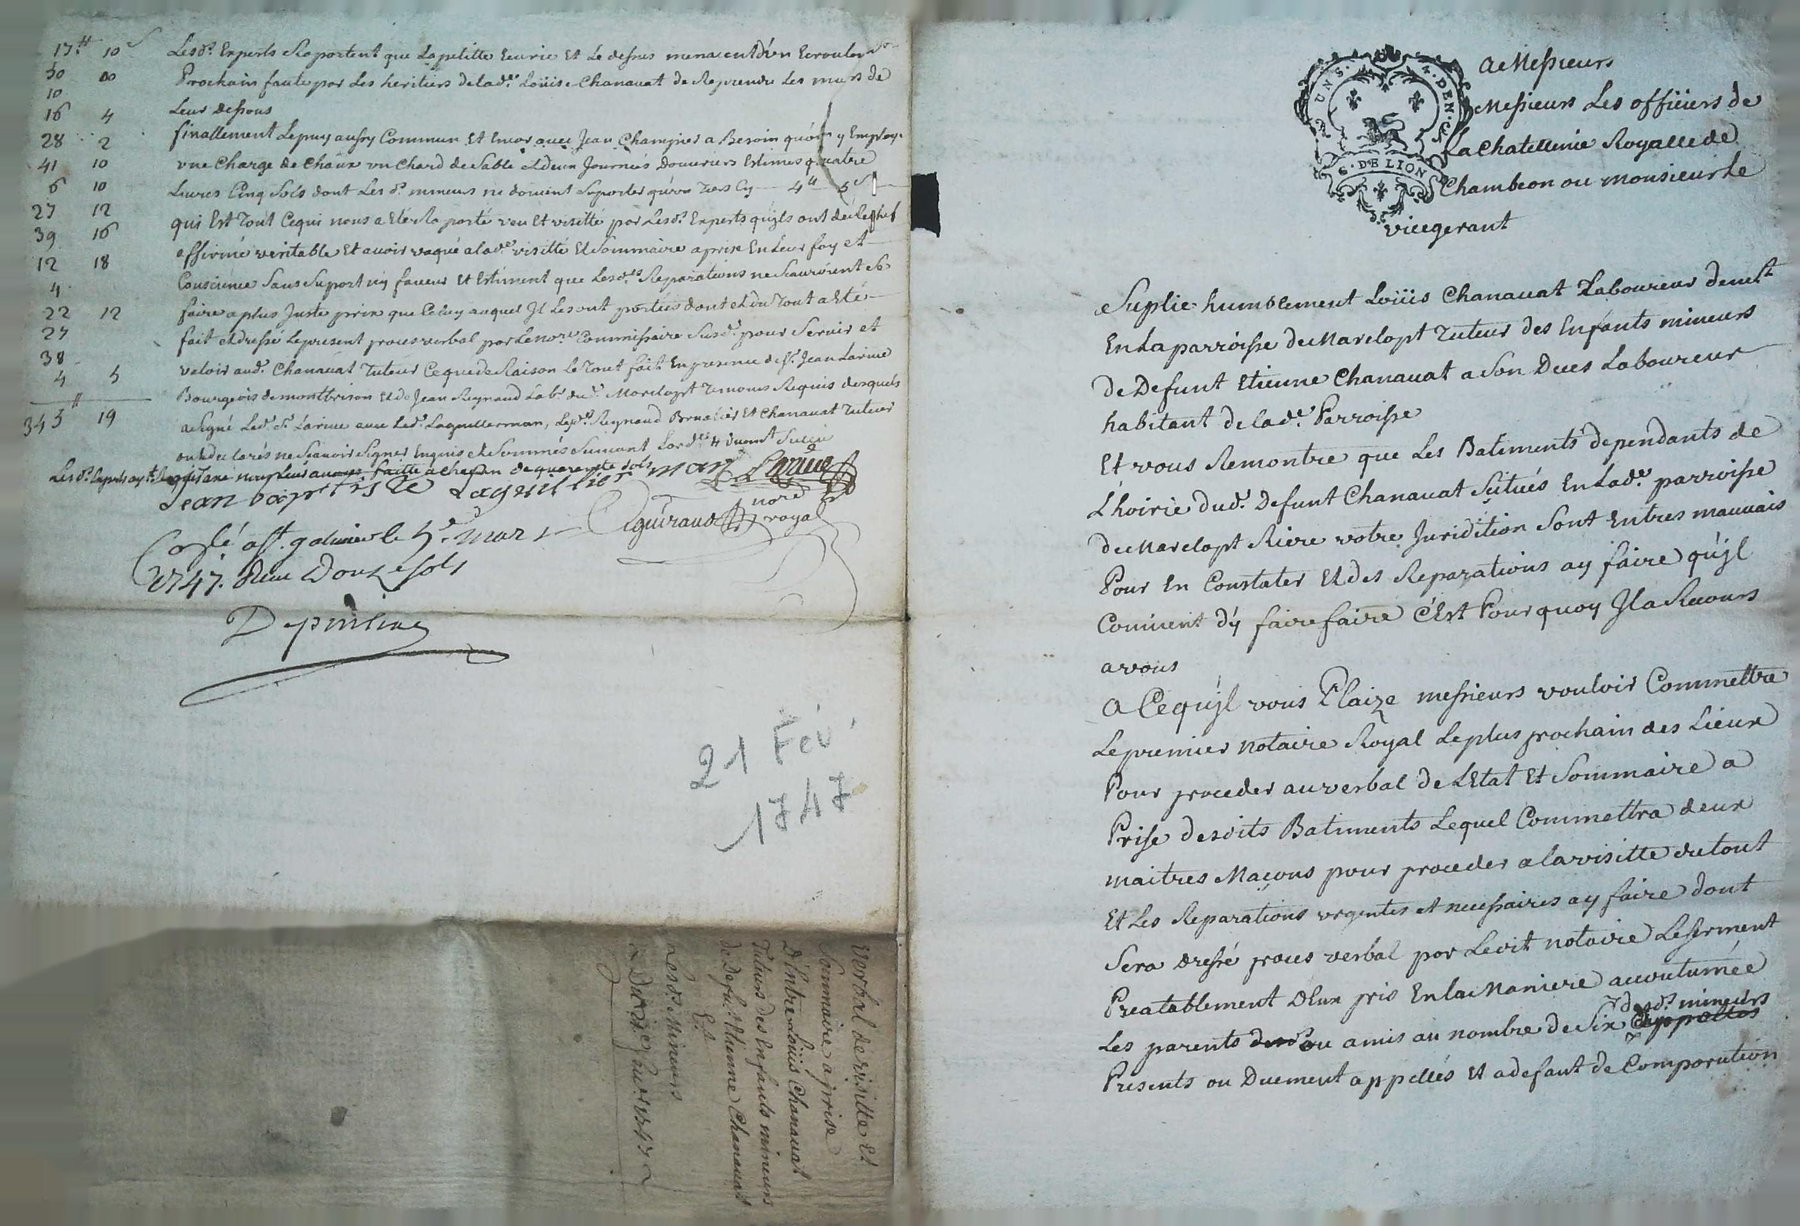 17ᵗᵗ 10ˢ
30 10
10
16 4
28 2
41 10
6 10
27 12
39 16
12 18
4
22 12
27
38
4 5
345ᵗᵗ 19
Lesdᵗˢ Experts Raportent que La petitte Ecurie Et Le dessus menacent d'en Ecrouler
Prochain faute par Les heritiers de ladᵉ Loüise Chanauat de Reprendre Les murs de
Leur dessous
finallement Le puy aussy Commun Et Enor avec Jean Champier a Besoin qu'on y Employe
une Charge de Chaux un Chard de Sable et deux Journées D'ouvriers Estimés quatre
Livres Cinq Sols dont Lesdᵗˢ mineurs ne doivent Suporter qu'un Tiers Cy 4ᵗᵗ 5ˢ
qui Est Tout Cequi nous a Eté Raporté veu Et visitté par Lesdᵗˢ Experts qu'ils ont de Rechef
affirmé veritable Et avoir vaqué a ladᵉ visitté Et Sommaire aprise En Leur foy et
Conscience Sans Suport ny faveur Et Estiment que Lesdᵗᵉˢ Reparations ne Scauroient Se
faire a plus Juste prix que Celuy auquel Jl Les ont portées dont et du Tout a Eté
fait et dressé Le present procés verbal par Le noʳᵉ Commissaire Susdᵗ pour Servir et
valoir audᵗ Chanauat Tuteur Ceque de Raison Le Tout fait En presence de Sʳ Jean Larue
Bourgeois de montbrison Et de Jean Reynaud Labʳ duᵗ Marclopt Temoins Requis desquels
a Signé Ledᵗ Sʳ Larue avec Ledᵗ Laquillerman, Lesdᵗˢ Reynaud et Chanauat Tuteur
ont declarés ne Scavoir Signer Enquis et Sommés Suivant Lordᶜᵉ
Jean baptiste Laguillierman Larue
Guiraud noʳᵉ royal
Conlé a Sᵗ galmier le 5ᵉ mars
1747. Reçu Douze sols
Depinhac
21 Fév.
1747
Verbal de visitte Et
Sommaire aprise
D'Entre Loüis Chanauat
Tuteur des Enfants mineurs
de Defᵗ Etienne Chanauat
Et
Lesdᵗˢ Mineurs
UNS. 4. DEN.
G. DE LION
A Messieurs
Messieurs Les officiers de
La Chatellenie Royalle de
Chambeon ou monsieur Le
vicegerant
Suplie humblement Loüis Chanauat Laboureur demᵗ
En La parroisse de Marclopt Tuteur des Enfants mineurs
de Defunt Etienne Chanauat a Son Deces Laboureur
habitant de ladᵉ Parroisse
Et vous Remontre que Les Batiments dependants de
L'hoirie dudᵗ Defunt Chanauat Scitués En Ladᵉ parroisse
de Marclopt Riere votre Juridition Sont En tres mauvais
Pour En Constater Et des Reparations a y faire qu'jl
Convient d'y faire faire C'Est Pourquoy Jl a Recours
a vous
A Cequ'jl vous Plaize messieurs vouloir Commettre
Le premier notaire Royal Le plus prochain des Lieux
Pour proceder au verbal de L'Etat Et Sommaire a
Prise desdits Batiments Lequel Commettra deux
maitres Maçons pour proceder a la visitte de tout
Et Les Reparations urgentes et necessaires a y faire dont
Sera dressé procés verbal par Ledit notaire Le Serment
Preatablement D'Eux pris En la Maniere accoutumée
desdᵗˢ mineurs
Les parents ou amis au nombre de Six appellés
Presents ou Duement appellés Et a defaut de Comparution